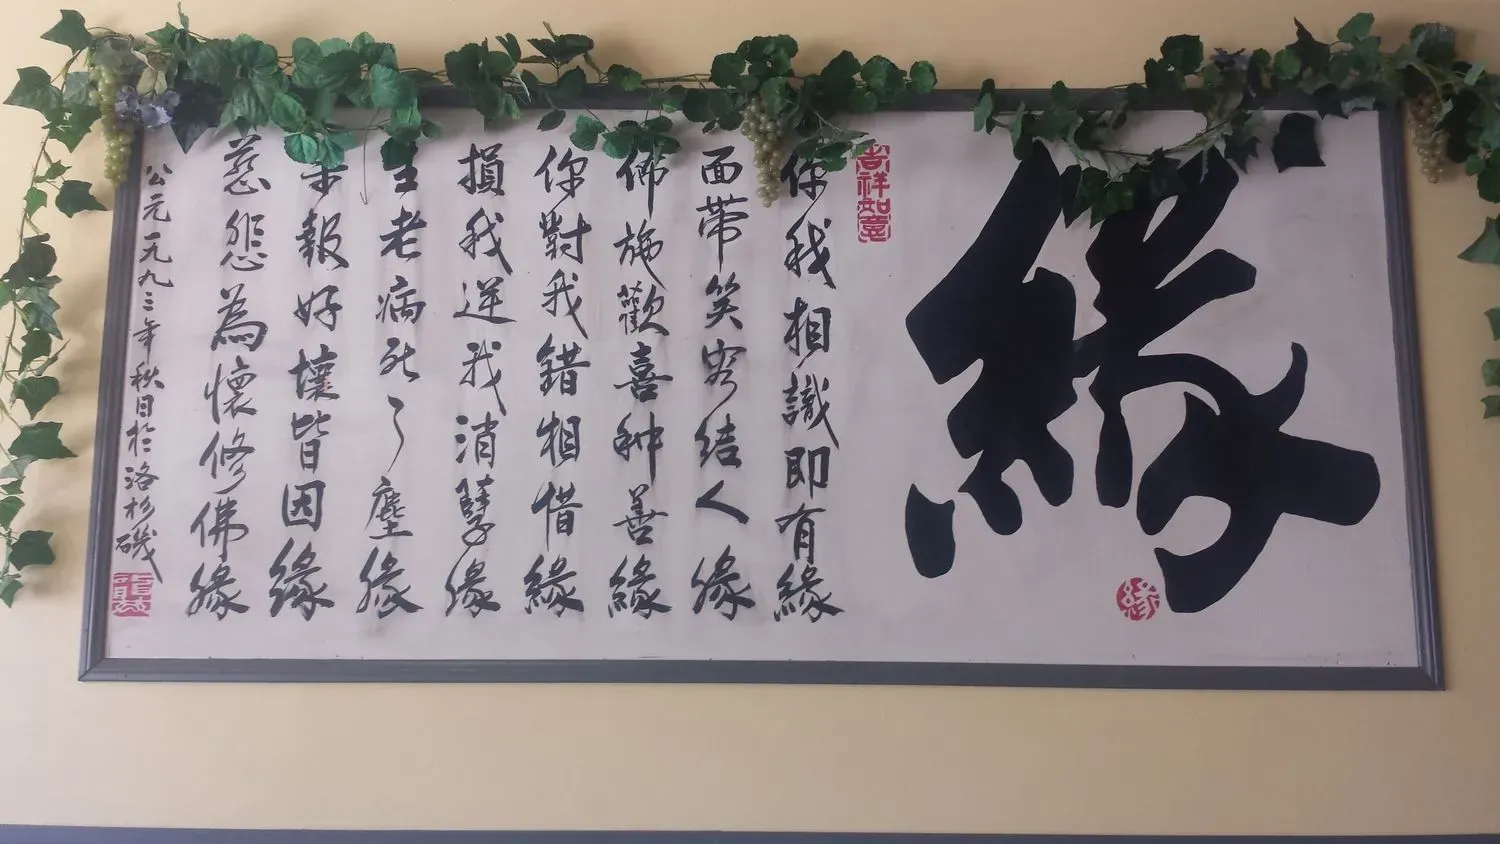 緣
吉祥如意
你我相識即有緣
面带笑容结人缘
佈施歡喜种善緣
你對我錯相惜緣
損我逆我消孽缘
生老病死了塵缘
報好壞皆因缘
慈悲為懷修佛缘
公元一九九三年秋日於洛杉磯